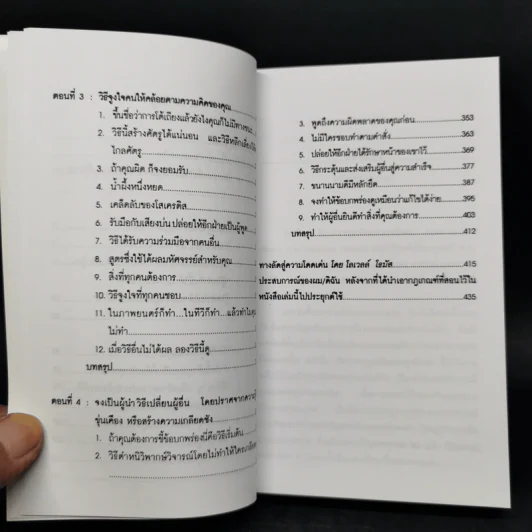 ตอนที่ 3 : วิธีจูงใจคนให้คล้อยตามความคิดของคุณ
1. ขึ้นชื่อว่าการโต้เถียงแล้วยังไงคุณก็ไม่มีทางชนะ
2. วิธีนี้สร้างศัตรูได้แน่นอน และวิธีหลีกเลี่ยง
ไกลศัตรู
3. ถ้าคุณผิด ก็จงยอมรับ
4. น้ำผึ้งหนึ่งหยด
5. เคล็ดลับของโสเครติส
6. รับมือกับเสียงบ่น ปล่อยให้อีกฝ่ายเป็นผู้พูด
7. วิธีได้รับความร่วมมือจากคนอื่น
8. สูตรซึ่งใช้ได้ผลมหัศจรรย์สำหรับคุณ
9. สิ่งที่ทุกคนต้องการ
10. วิธีจูงใจที่ทุกคนชอบ
11. ในภาพยนตร์ก็ทำ...ในทีวีก็ทำ...แล้วทำไม
ไม่ทำ
12. เมื่อวิธีอื่นไม่ได้ผล ลองวิธีนี้ดู
บทสรุป
ตอนที่ 4 : จงเป็นผู้นำ วิธีเปลี่ยนผู้อื่น โดยปราศจากความ
ขุ่นเคือง หรือสร้างความเกลียดชัง
1. ถ้าคุณต้องการชี้ข้อบกพร่องนี่คือวิธีเริ่มต้น
2. วิธีตำหนิวิพากษ์วิจารณ์โดยไม่ทำให้ใคร
3. พูดถึงความผิดพลาดของคุณก่อน 353
4. ไม่มีใครชอบทำตามคำสั่ง 363
5. ปล่อยให้อีกฝ่ายได้รักษาหน้าของเขาไว้ 369
6. วิธีกระตุ้นและส่งเสริมผู้อื่นสู่ความสำเร็จ 377
7. ขนานนามดีมีหลักยึด 387
8. จงทำให้ข้อบกพร่องดูเหมือนว่าแก้ไขได้ง่าย 395
9. ทำให้ผู้อื่นยินดีทำสิ่งที่คุณต้องการ 403
บทสรุป 412
ทางลัดสู่ความโดดเด่น โดย โลเวลล์ โธมัส 415
ประสบการณ์ของผม/ดิฉัน หลังจากที่ได้นำเอากฎเกณฑ์ที่สอนไว้ใน
หนังสือเล่มนี้ไปประยุกต์ใช้ 435